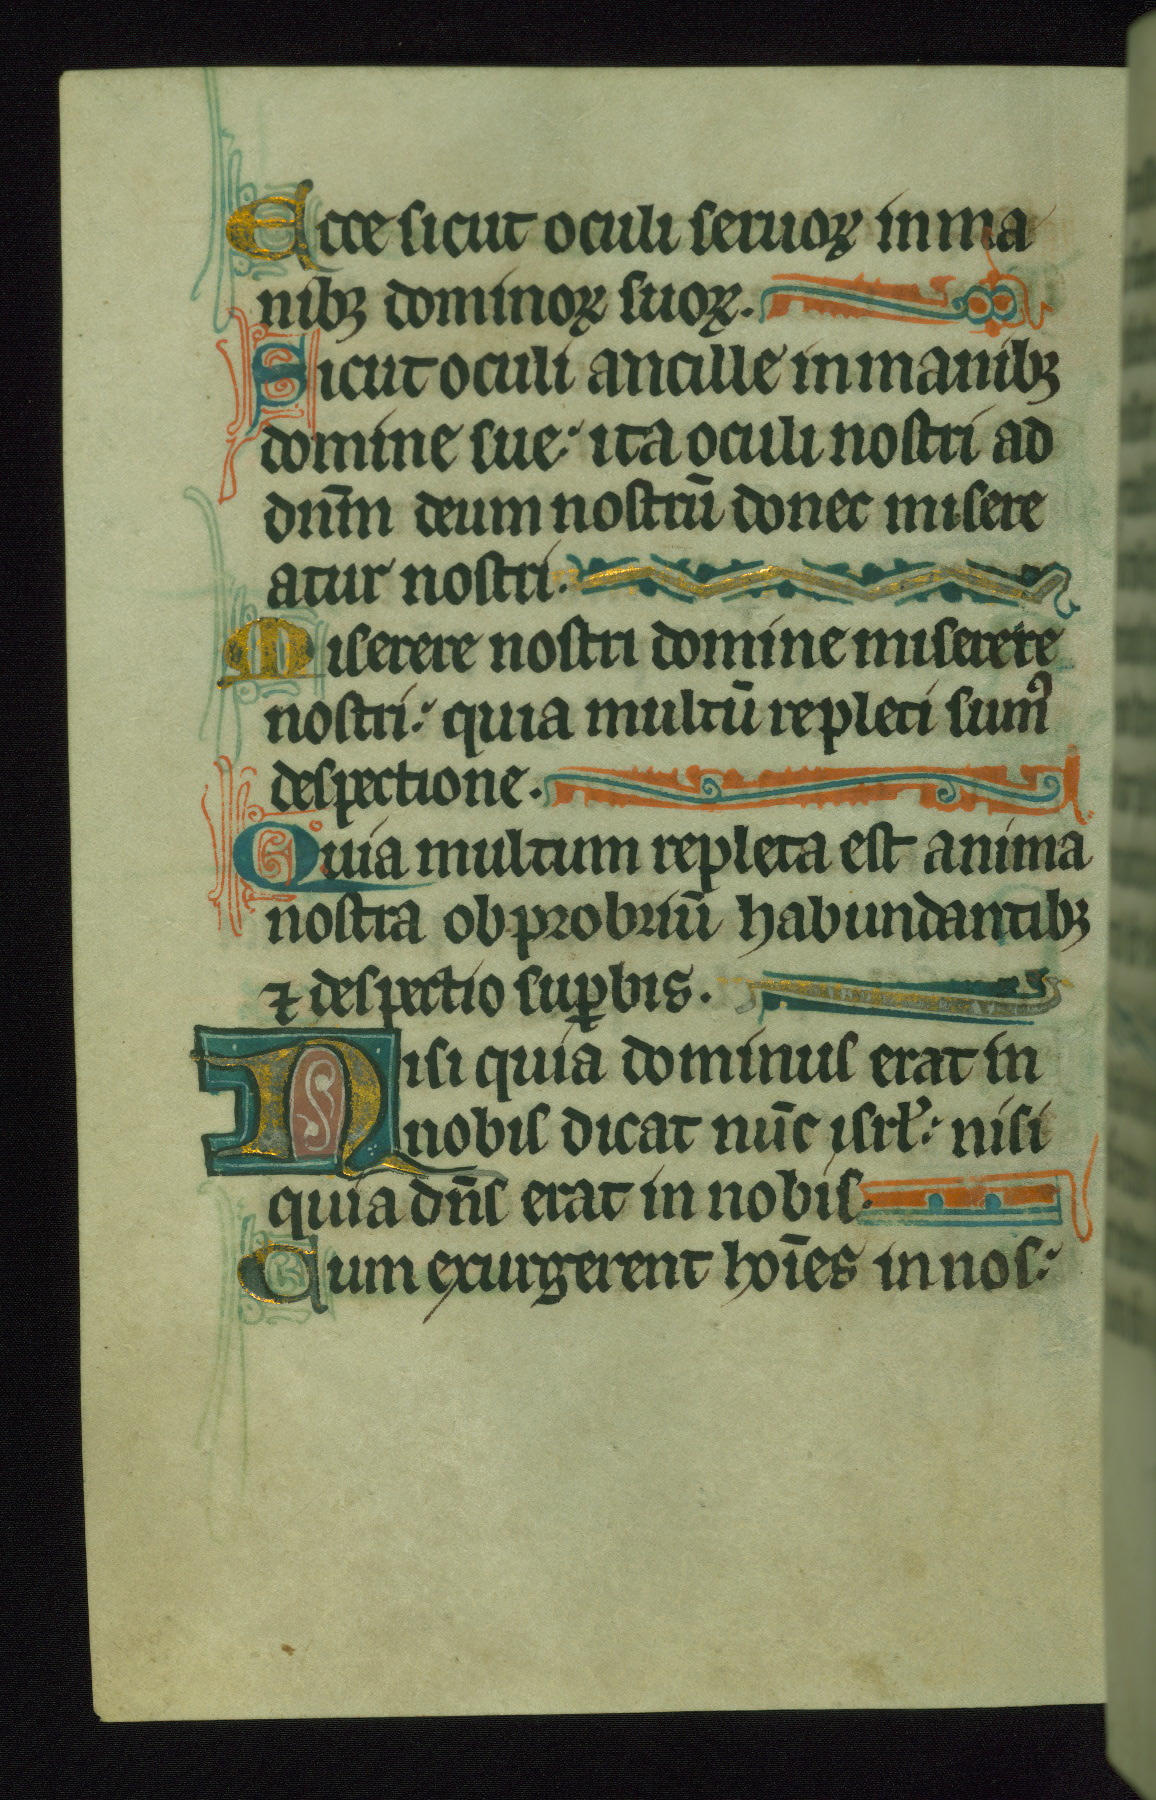 Ecce sicut oculi seruoꝝ in ma
nibꝫ dominoꝝ suoꝝ.
Sicut oculi ancille in manibꝫ
domine sue: ita oculi nostri ad
dn̄m deum nostrū donec misere
atur nostri.
Miserere nostri domine miserere
nostri: quia multū repleti sumꝰ
despectione.
Quia multum repleta est anima
nostra obprobriū habundantibꝫ
⁊ despectio suꝑbis.
Nisi quia dominus erat in
nobis dicat nūc isrl̓: nisi
quia dn̄s erat in nobis.
Cum exurgerent hoīes in nos: